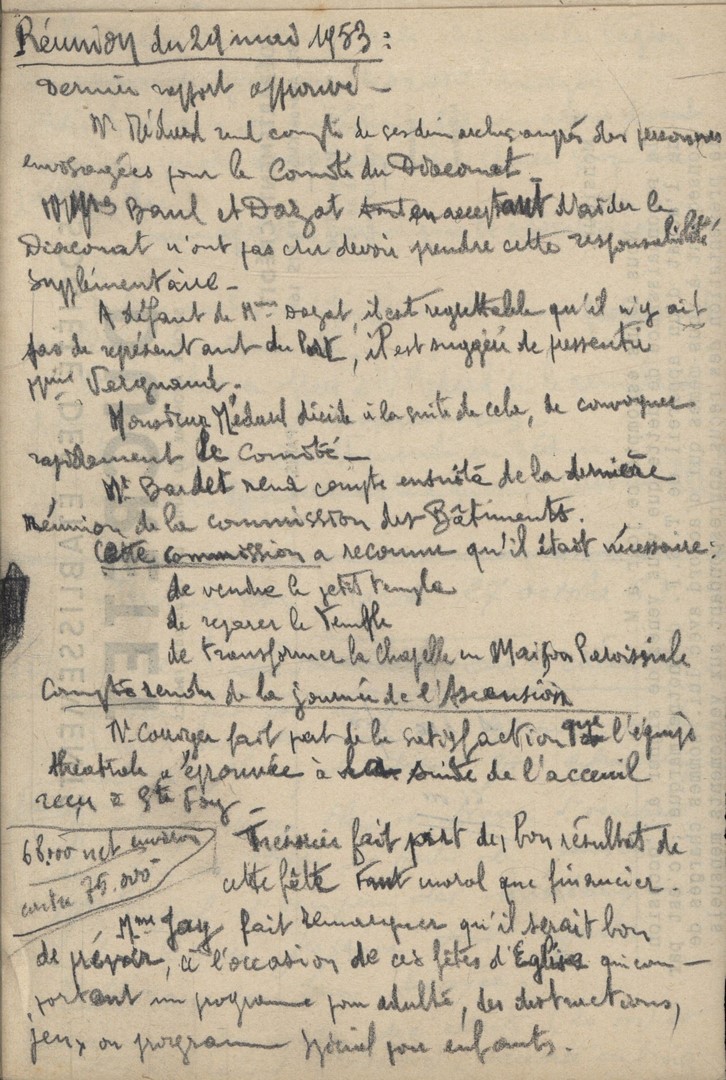 Réunion du 29 mai 1953 :
Dernier rapport approuvé -
Mr Médard rend compte de ses démarches auprès des personnes
envisagées pour le Comité du Diaconat -
Mmes Baul et Dazat tout en acceptant d'aider le
Diaconat n'ont pas cru devoir prendre cette responsabilité
supplémentaire -
A défaut de Mme Dazat, il est regrettable qu'il n'y ait
pas de représentant du Port, il est suggéré de pressentir
Mme Vergnaud.
Monsieur Médard décide à la suite de cela, de convoquer
rapidement le Comité -
Mr Bardet rend compte ensuite de la dernière
Réunion de la commission des Bâtiments.
Cette commission a reconnu qu'il était nécessaire :
de vendre le petit temple
de reparer le Temple
de transformer la Chapelle en Maison Paroissiale
Compte rendu de la Journée de l'Ascension
Mr fait part de la satisfaction que l'équipe
théatrale a éprouvée à la suite de l'acceuil
reçu à Ste Foy -
68.000 net environ
contre 75.000
Trésorier fait part des bon résultat de
cette fête tant moral que financier.
Mme Jay fait remarquer qu'il serait bon
de prévoir, à l'occasion de ces fêtes d'Eglise qui com-
portent un programme pour adulte, des distractions,
jeux ou programme spécial pour enfants.